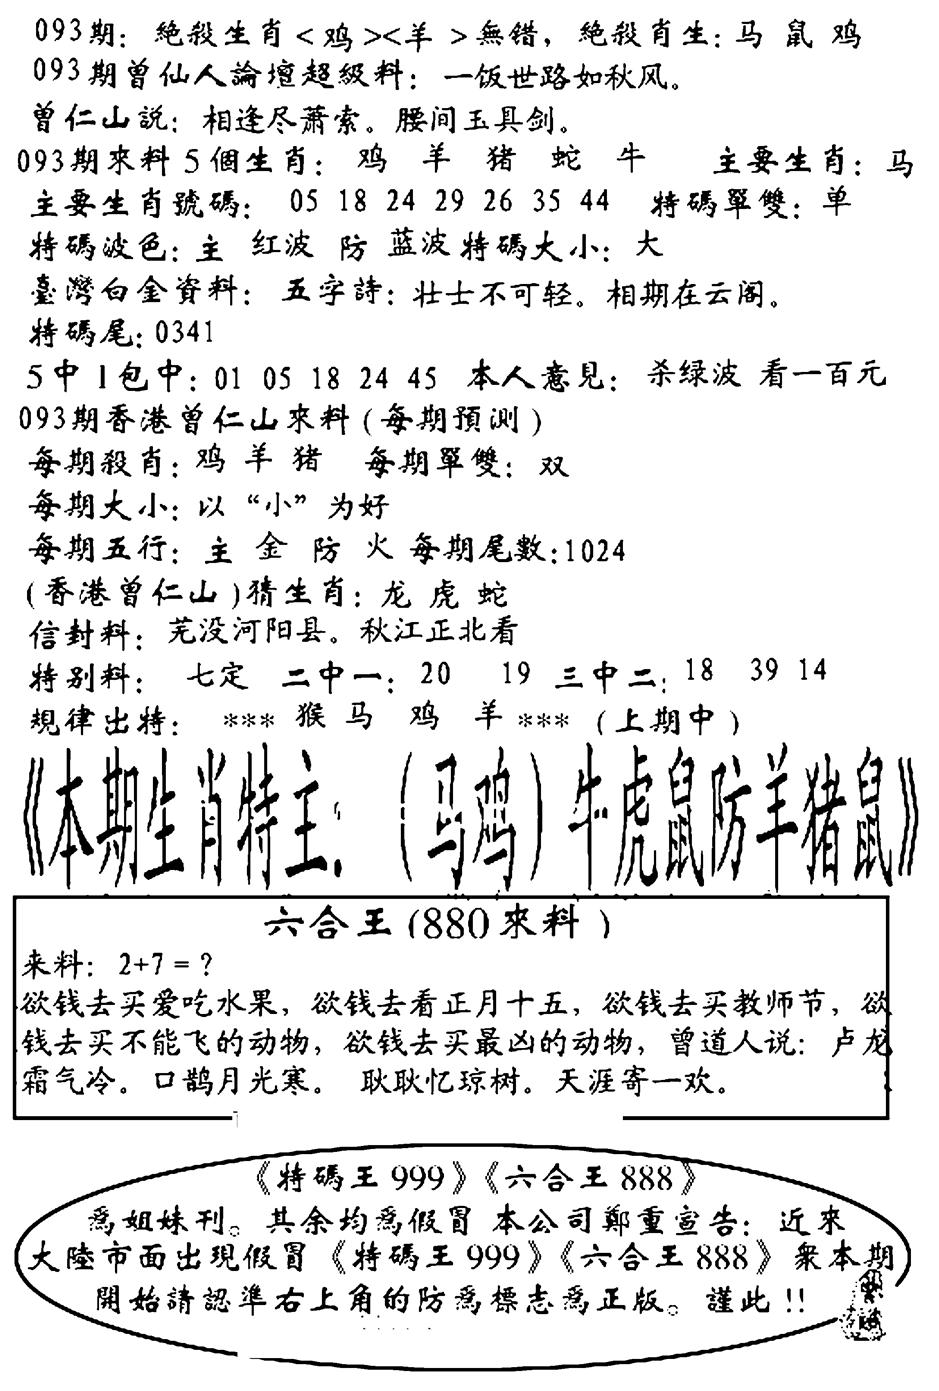 093期: 絶殺生肖<鸡><羊 >無錯, 絶殺肖生: 马 鼠 鸡
093期曾仙人論壇超級料: 一饭世路如秋风。
曾仁山説: 相逢尽萧索。腰间玉具剑。
093期來料5個生肖: 鸡 羊 猪 蛇 牛 主要生肖: 马
主要生肖號碼: 05 18 24 29 26 35 44 特碼單雙: 单
特碼波色: 主 红波 防 蓝波 特碼大小: 大
臺灣白金資料: 五字詩: 壮士不可轻。相期在云阁。
特碼尾: 0341
5中1包中: 01 05 18 24 45 本人意見: 杀绿波 看一百元
093期香港曾仁山來料(每期預测)
每期殺肖: 鸡 羊 猪 每期單雙: 双
每期大小: 以“小”为好
每期五行: 主 金 防 火 每期尾數:1024
(香港曾仁山)猜生肖: 龙 虎 蛇
信封料: 芜没河阳县。秋江正北看
特别料: 七定 二中一: 20 19 三中二: 18 39 14
規律出特: *** 猴 马 鸡 羊 *** (上期中)
《本期生肖特主: (马鸡)牛虎鼠防羊猪鼠》
六合王(880來料)
来料: 2+7=?
欲钱去买爱吃水果, 欲钱去看正月十五, 欲钱去买教师节, 欲
钱去买不能飞的动物, 欲钱去买最凶的动物, 曾道人说: 卢龙
霜气冷。口鹊月光寒。 耿耿忆琼树。天涯寄一欢。
《特碼王999》《六合王888》
爲姐妹刊。其余均爲假冒 本公司鄭重宣告: 近來
大陸市面出現假冒《特碼王999》《六合王888》衆本期
開始請認準右上角的防爲標志爲正版。謹此!!